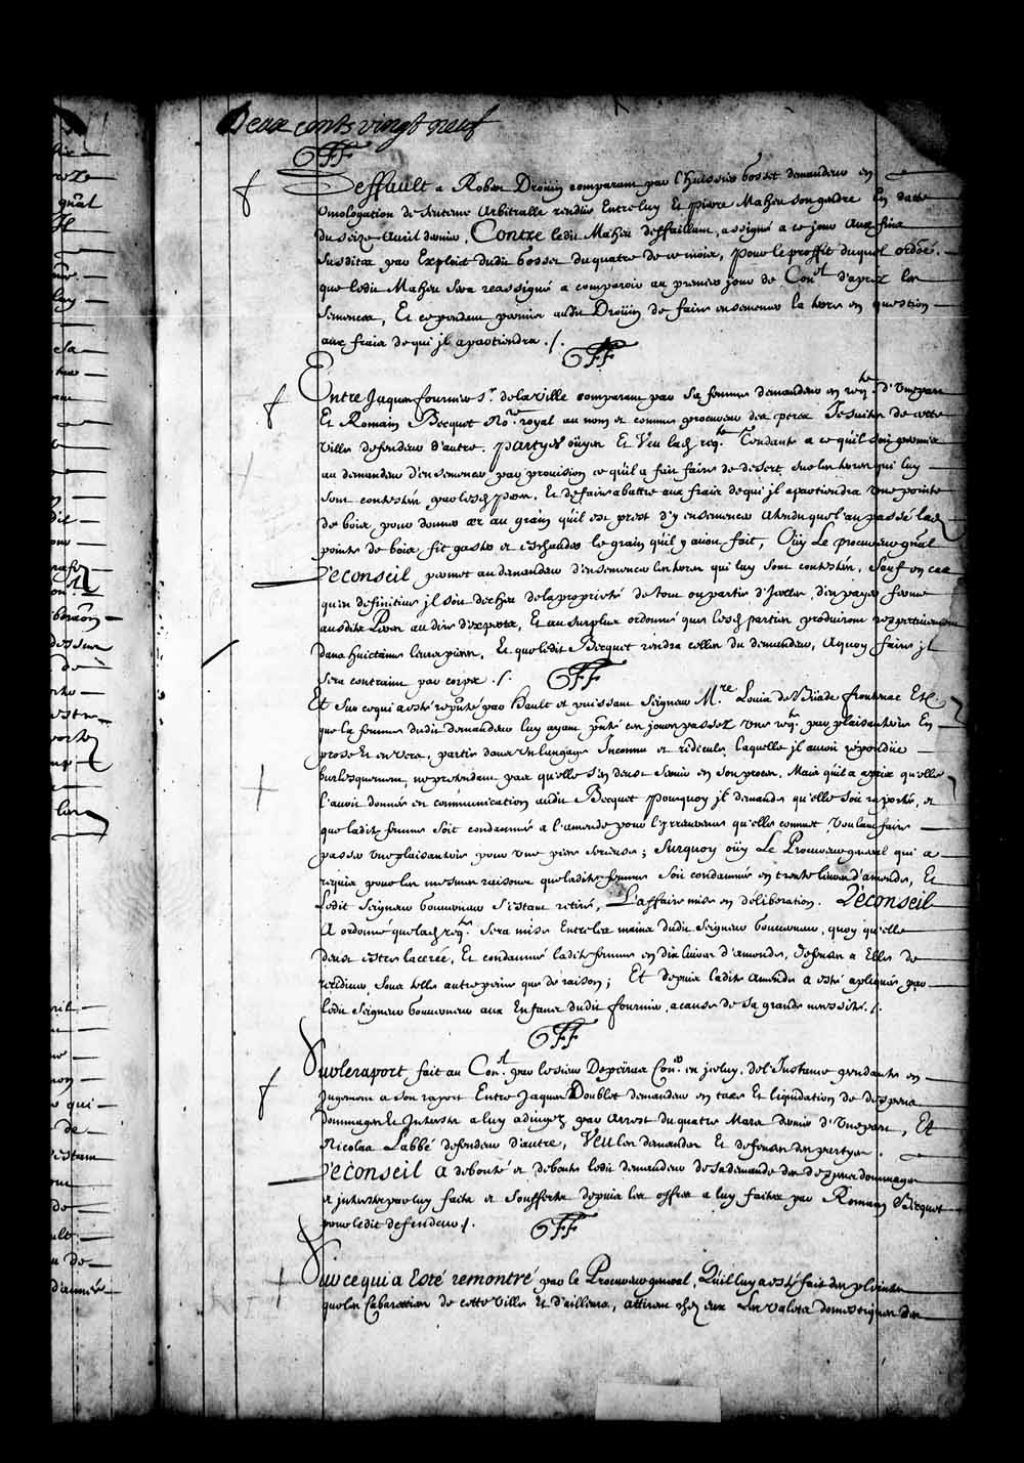 Deux cents vingt neuf
Deffault a Robert Droüin comparant par l'huissier Gosset demandeur en
omologation de sentence arbitralle rendüe Entre luy Et pierre Maheu son gendre En datte
du seize avril dernier, Contre ledit Maheu deffaillant, assigné a ce jour aux fins
susdites par Exploit dudit Gosset du quatre de ce mois, pour le proffit duquel ordoé
que ledit Maheu sera reassigné a comparoir au premier jour de Conel d'aprez les
semences, Et cependant permis audit Droüin de faire ensemencer la terre en question
aux frais de qui jl apartiendra ./.
Entre Jaques fournier sr. de la ville comparant par sa femme demandeur en reqte d'Une part
Et Romain Becquet Nore royal au nom et comme procureur des peres Jesuites de cette
ville defendeur d'autre. partyes oüyes Et Veu lad reqte Tendante a ce qu'il soit permis
au demandeur d'ensemencer par provision ce qu'il a fait faire de desert sur les terres qui luy
sont contestées par lesd peres, Et de faire abattre aux frais de qui jl apartiendra Une pointe
de bois pour donner air au grain qu'il est prest d'y ensemencer attendu que l'an passé lad
pointe de bois fit gaster et eschauder le grain qu'il y avoit fait, Oüy Le procureur gñal
Le conseil permet au demandeur d'ensemencer les terres qui luy sont contestées, sauf en cas
qu'en definitive jl soit decheu de la proprieté de tout ou partie d'Jcelles, d'en payer ferme
ausdits Peres au dire d'expertz, Et au surplus ordonné que lesd parties produiront respectivement
dans huictaine leurs pieces, Et que ledit Becquet rendra celles du demandeur, A quoy faire jl
sera contraint par corps ./.
Et sur ce qui a esté reputé par hault et puissant Seigneur Mre Louis de Buade frontenac Etc.
que la femme dudit demandeur luy ayant pñté ces jours passez Une reqte par plaisanterie En
prose Et en vers, partie dans Un langage Inconnu et ridicule, laquelle jl auroit repondüe
burlesquement, ne pretendant pas qu'elle s'en deust servir en son proces. Mais qu'il a apris qu'elle
l'avoit donnée en communication audit Becquet pourquoy jl demande qu'elle soit raportée, et
que ladite femme soit condamnée a l'amende pour l'irreverence qu'elle commet Voulant faire
passer Une plaisanterie pour Une piece serieuse; Surquoy oüy Le Procureur general qui a
requis pour les mesmes raisons que ladite femme soit condamnée en trente livres d'amende, Et
Ledit Seigneur Gouverneur s'estant retiré, L'affaire mise en déliberation. Le conseil
A ordonné que lad reqte sera mise Entre les mains dudit Seigneur Gouverneur, quoy qu'elle
deust estre lacerée, Et condamné ladite femme en dix livres d'amende, defenses a Elles de
recidiver sous telle autre peine que de raison; Et depuis ladite amende a esté apliquée par
ledit Seigneur Gouverneur aux Enfans dudit fournier, a cause de sa grande necessité ./.
Sur le raport fait au Conel par le sieur Depeiras Coner en jceluy, de l'Instance pendante en
jugement a son raport Entre Jaques Doublet demandeur en taxe Et liquidation de despens
dommages Et Interests a luy adjugez par Arrest du quatre Mars dernier d'Une part, Et
Nicolas Labbé defendeur d'autre, Veu les demandes Et defenses des partyes.
Le conseil a debouté et deboute ledit demandeur de sa demande des despens dommages
et jnterests par luy faits et soufferts depuis les offres a luy faites par Romain Becquet
pour ledit defendeur ./.
Sur ce qui a Esté remontré par le Procureur general, Qu'il luy a esté fait des plaintes
que les Cabaretiers de cette Ville Et d'ailleurs, attirent chez eux Les valets domestiques des